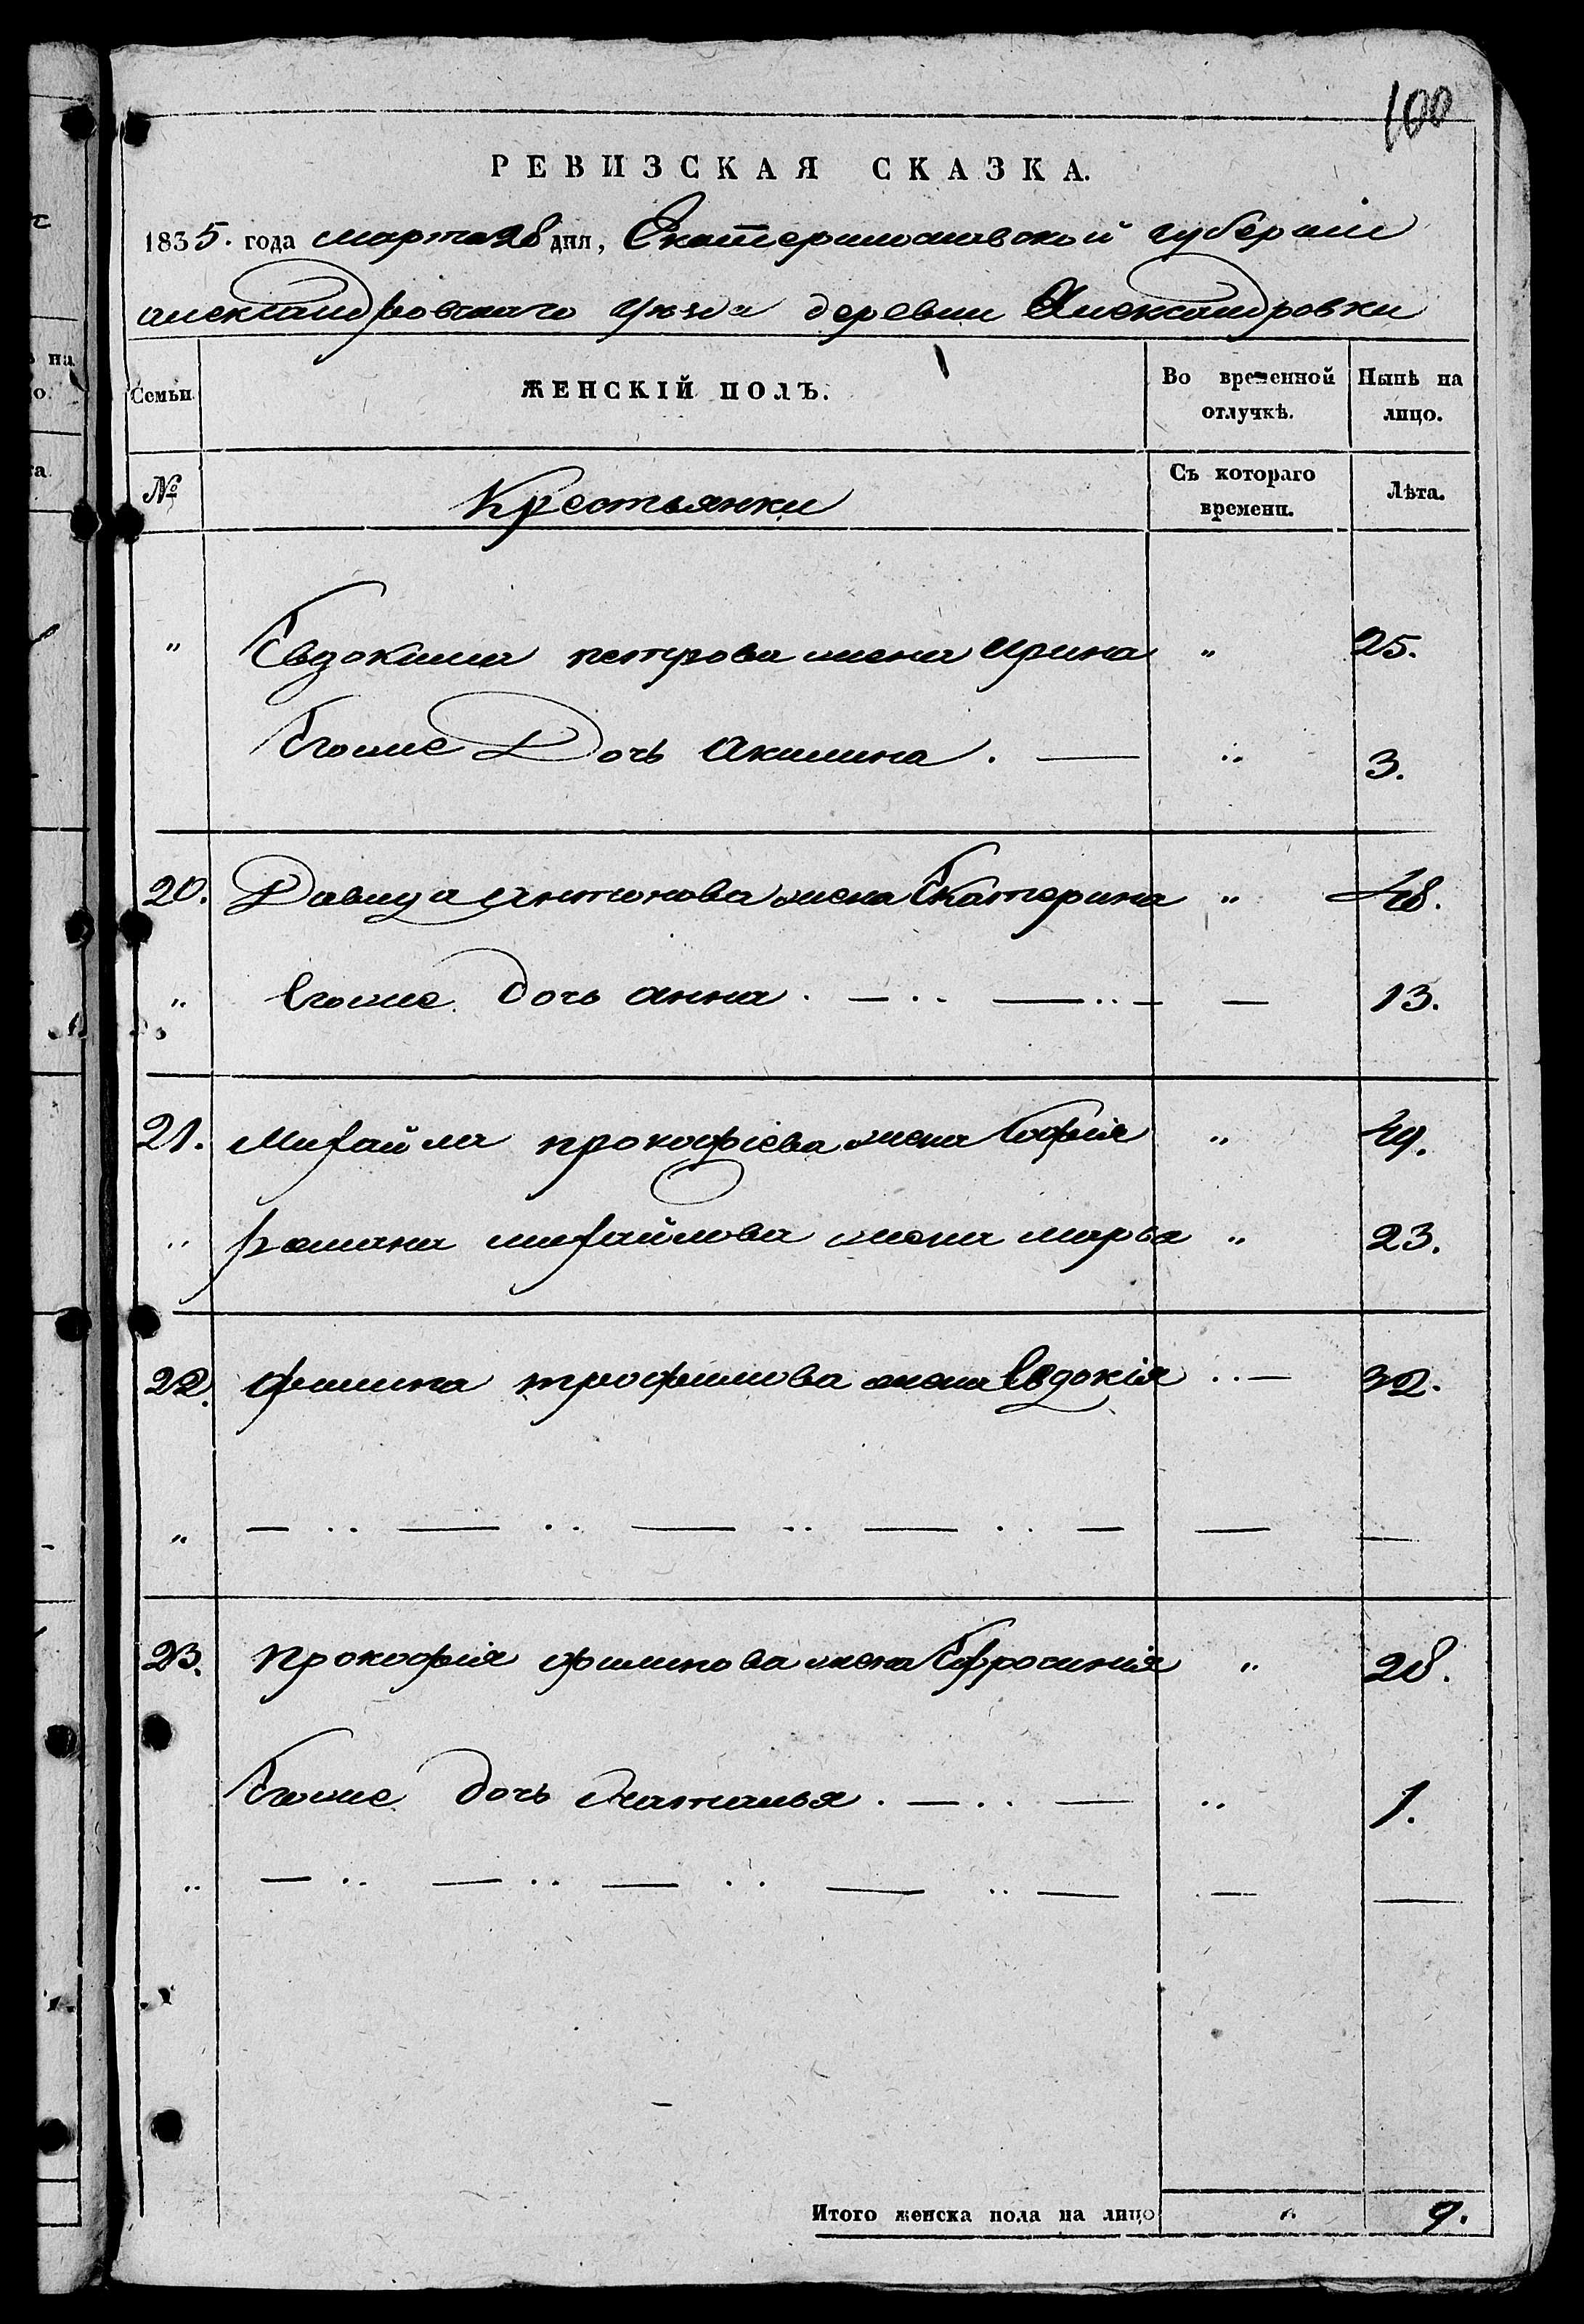 100
РЕВИЗСКАЯ СКАЗКА.
1835. года марта 28 дня, Екатеринославской губерніи
александровскаго уѣзда деревни Александровки
Семьи. ЖЕНСКІЙ ПОЛЪ. Во временной отлучкѣ. Нынѣ на лицо.
№ Крестьянки Съ котораго времени. Лѣта.
" Евдокима петрова жена Ирина " 25.
Егоже Дочь Акилина . — " 3.
20. Давида Антонова жена Екатерина " 48.
" Егоже дочь анна . — .. — .. — — 13.
21. Михайла прокофіева жена Софія " 49.
" романа михайлова жена марья " 23.
22. филипа трофимова жена Евдокія .. — 32.
" — .. — .. — .. — .. — — —
23. Прокофія филипова жена Ефросинія " 28.
Егоже дочь Наталья . — .. — " 1.
" — .. — .. — .. — .. — — —
Итого женска пола на лицо " 9.